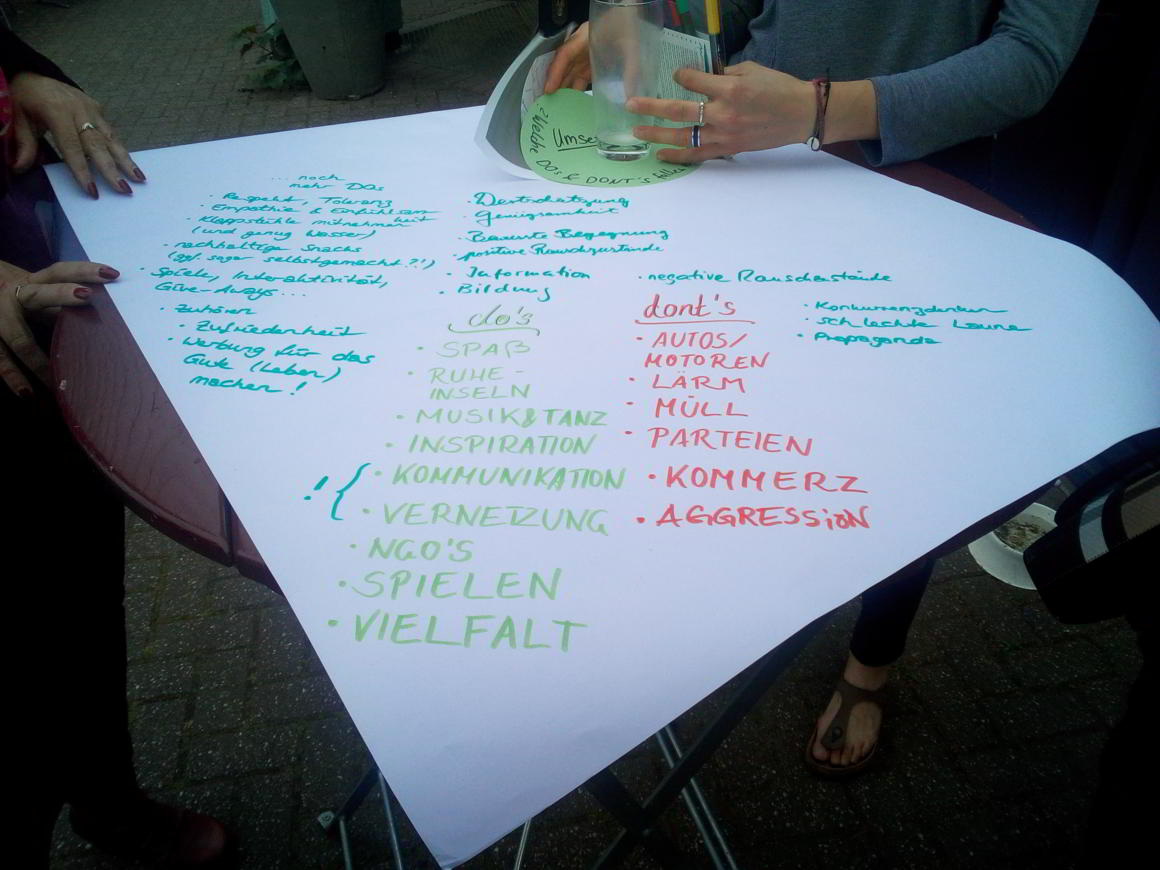 Umse
Welche DOs & DONT's fallen
...noch
mehr DOs
• Respekt, Toleranz
• Empathie & Einfühlsamkeit
• Klappstühle mitnehmen
(und genug Wasser)
• nachhaltige Snacks
(ggf. sogar selbstgemacht?!)
• Spiele, Interaktivität,
Give-Aways...
• zuhören
• Zufriedenheit
• Werbung für das
Gute (Leben)
machen!
• Wertschätzung
• Genügsamkeit
• Bewusste Begegnung
• positive Rauschzustände
• Information
• Bildung
do's
• SPAß
• RUHE-
INSELN
• MUSIK & TANZ
• INSPIRATION
! { • KOMMUNIKATION
• VERNETZUNG
• NGO'S
• SPIELEN
• VIELFALT
• negative Rauschzustände
dont's
• AUTOS/
MOTOREN
• LÄRM
• MÜLL
• PARTEIEN
• KOMMERZ
• AGGRESSiON
• Konkurrenzdenken
• schlechte Laune
• Propaganda